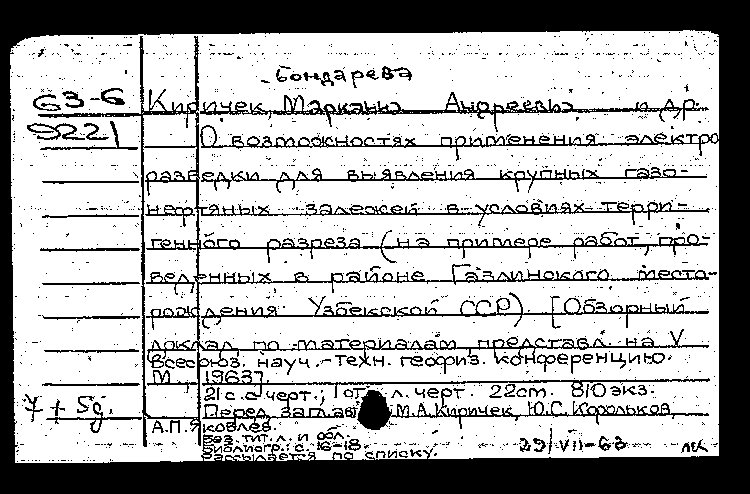 Бондарева
63-6 Киричек, Марканна Андреевна и др.
9221 О возможностях применения электро
разведки для выявления крупных газо-
нефтяных залежей в условиях терри-
генного разреза (на примере работ, про-
веденных в районе Газлинского место-
рождения Узбекской ССР). [Обзорный
доклад по материалам, представл. на V
Всесоюз. науч.-техн. геофиз. конференцию.
М., 1963].
21 с. с черт.; 1 отд. л. черт. 22 см. 810 экз.
7 + 5д. Перед загл. М.А. Киричек, Ю.С. Корольков,
А.П. Яковлев.
Без тит. л. и обл.
Библиогр.: с. 16-18.
Рассылается по списку.
29/VII-63